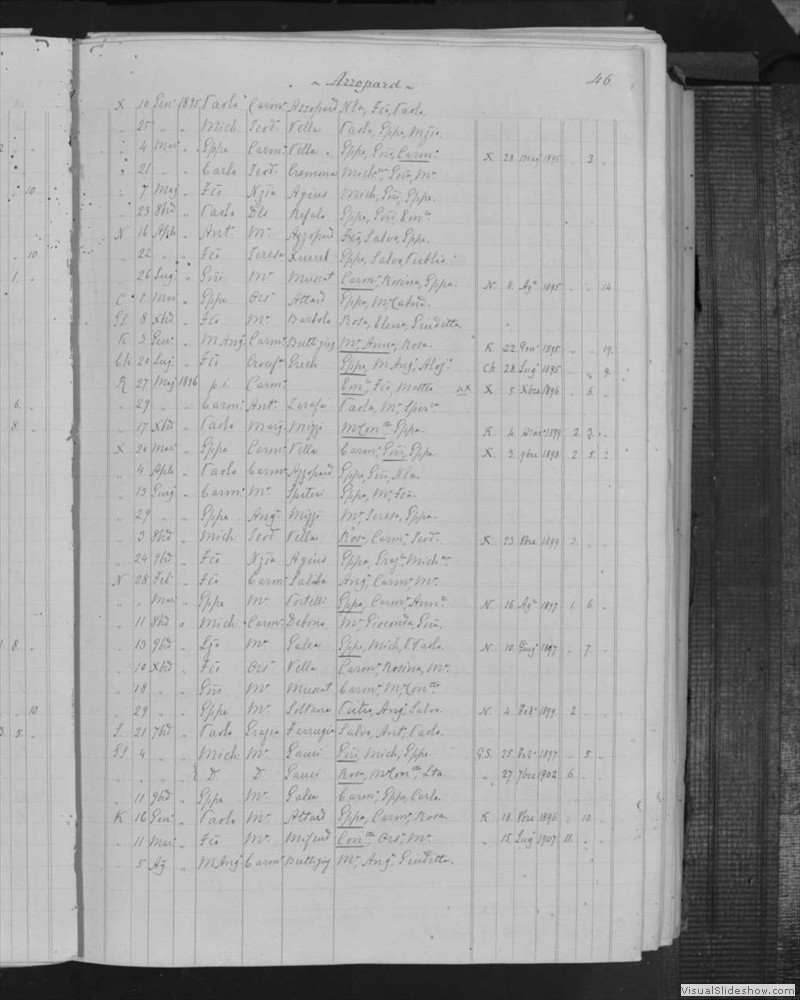 ~ Azzopard ~ 46.
X 10 Gen. 1895 Paolo Carm. Azzopard Nla, Fco, Paolo
„ 25 „ „ Mich. Teod. Vella Paolo, Gppe,
„ 4 Mar. „ Gppe Carm. Vella „ Gppe, Gio, Carm. X 28 Mag 1895 „ 3 „
„ 21 „ „ Carlo Teod. Cremona Gio, M.
„ 7 Mag „ Fco Nzia Agius Mich, Gio, Gppe.
„ 23 8bre „ Paolo Refalo Gppe, Gio
N 16 Aple „ Ant. M. Azzopard Fco, Salve, Gppe.
„ 22 „ „ Fco Teresa Xuereb Gppe, Salve, Publio
„ 26 Lug. „ Gio M. Muscat Carm. Rosina, Gppa. N. 8. Ag. 1895 „ „ 14
C 1 Mar. „ Gppe Ors. Attard Gppa,
8 Xbre „ Fco M. Bartolo Rosa, Elena, Giuditta
K 3 Gen. „ M Ang. Carm. Buttigieg M. Anna, Rosa. K 22 Gen. 1895 „ „ 19.
Ch 20 Lug. „ Fco Grech Gppa, M Ang, Aloj. Ch 28. Lug. 1895 „ „ 9.
R 27 Mag 1896 p.i. Carm. Em. Fco, Matteo X. 5. Xbre 1896 „ 6. „
„ 29 „ „ Carm. Ant. Zerafa Paola, M.
„ 17 Xbre „ Paolo Marg. Mizzi M Con. Gppa. K 4. 1899 2. 3. „
X 20 Mar. „ Gppe Carm. Vella Carm. Gio, Gppa X. 3. 9bre 1898 2 5. 2
„ 4 Aple „ Paolo Carm. Azzopard Gppe, Gio, Nla.
„ 13 Giug. „ Carm. M. Spiteri Gppa, M. Fca.
„ 29 „ „ Gppe Ang. Mizzi M. Teresa, Gppa.
„ 3 8bre „ Mich Teod. Vella Rosa, Carm. Teod. X. 23. 8bre 1899 3. „ „
„ 24 9bre „ Fco Nzia Agius Gppa, Mich
N 28 Feb. „ Fco Carm. Saliba Ang. Carm. M.
„ „ Mar. „ Gppe M. Portelli Gppa, Carm. N. 16 Ag. 1897 1. 6. „
„ 11 8bre „ Mich. Carm. Debono M. Gioconda, Gio.
„ 13 9bre „ M. Galea Gppe, Mich, Paolo. N. 10. Giug. 1897 „ 7. „
„ 10 Xbre „ Fco Ors. Vella Carm. Rosina, M.
„ 18 „ „ Gio M. Muscat Carm. M. Con.
„ 29 „ „ Gppe M. Soltana Pietro, Ang. Salve. N. 4 Feb. 1899 2 „
S. 21 7bre „ Paolo Grazia Farrugia Salve, Ant, Paolo.
4 „ „ Mich M. Gauci Gio, Mich, Gppe. G.S. 25 1897 „ 5 „
„ „ „ D. D. Gauci Rosa, M Con. „ 27 7bre 1902 6. „ „
„ 11 9bre „ Gppe M. Galea Carm. Gppa, Carlo
K 16 Gen. „ Paolo M. Attard Gppa, Carm. Rosa K 18. 8bre 1896 „ 10 „
„ 11 Mar. „ Fco M. Mifsud Con. Ors. M. „ 15 Lug. 1907 11 „ „
„ 5 Ag. „ M Ang. Carm. Buttigieg M. Ang. Giuditta.
1.
10
10
6.
8.
1 8.
10
3 5.
VisualSlideshow.com